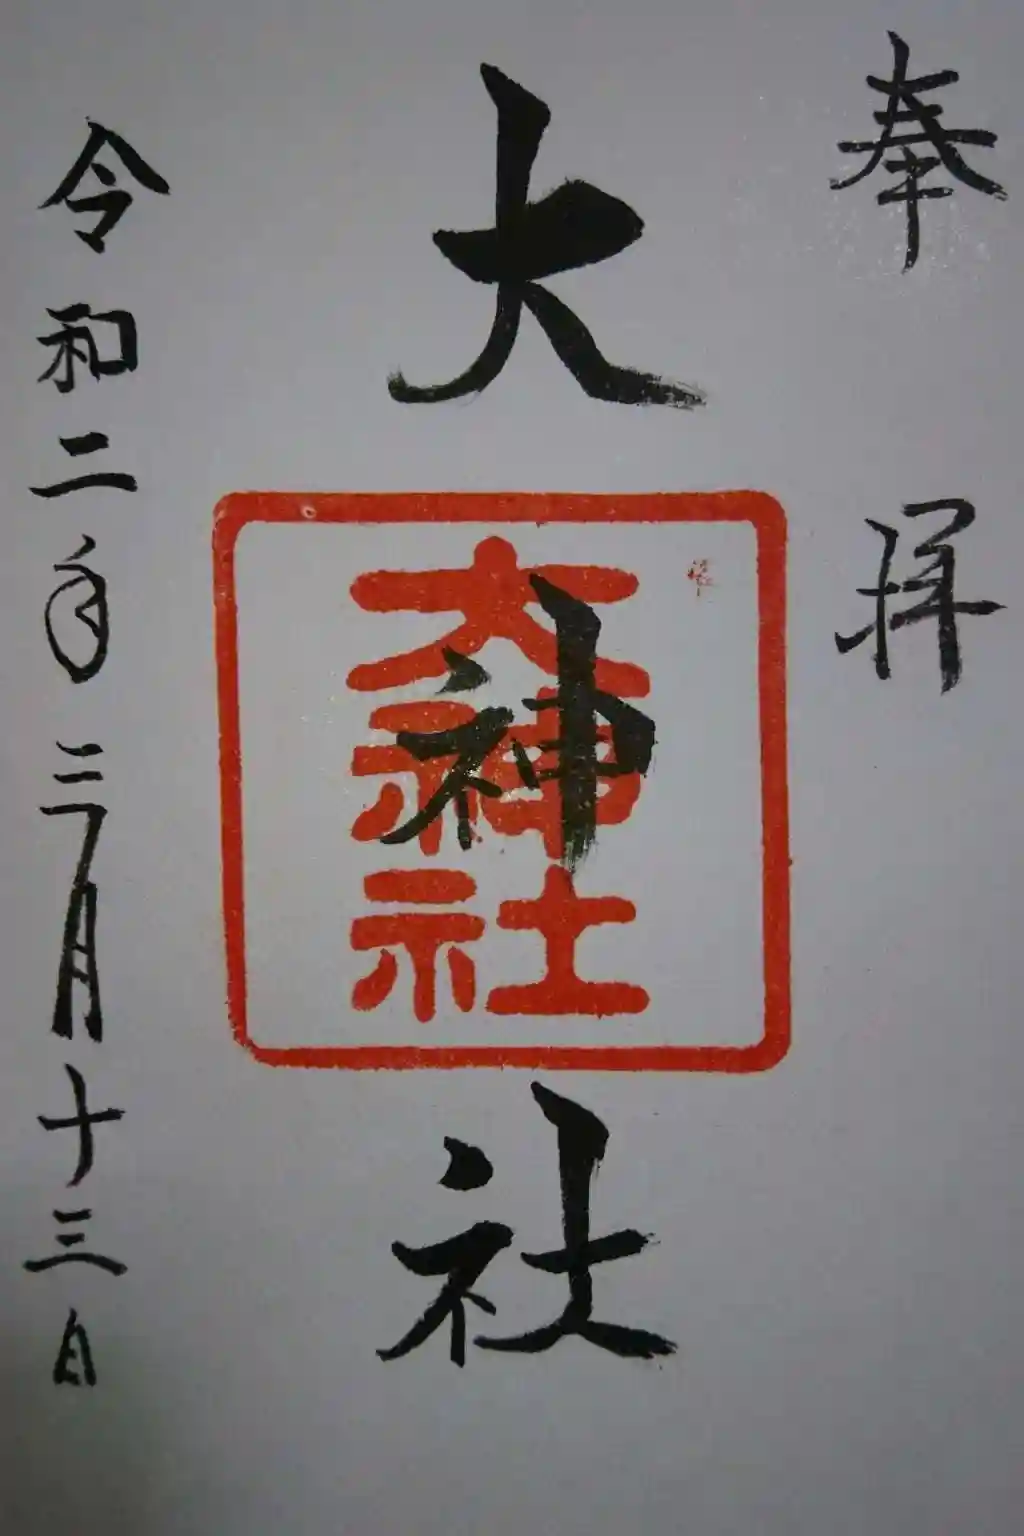 奉拝
大神社
大神社
令和二年三月十三日